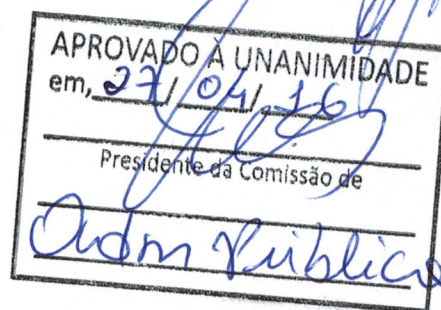 APROVADO À UNANIMIDADE
em, 27/04/16
Presidente da Comissão de
Pública